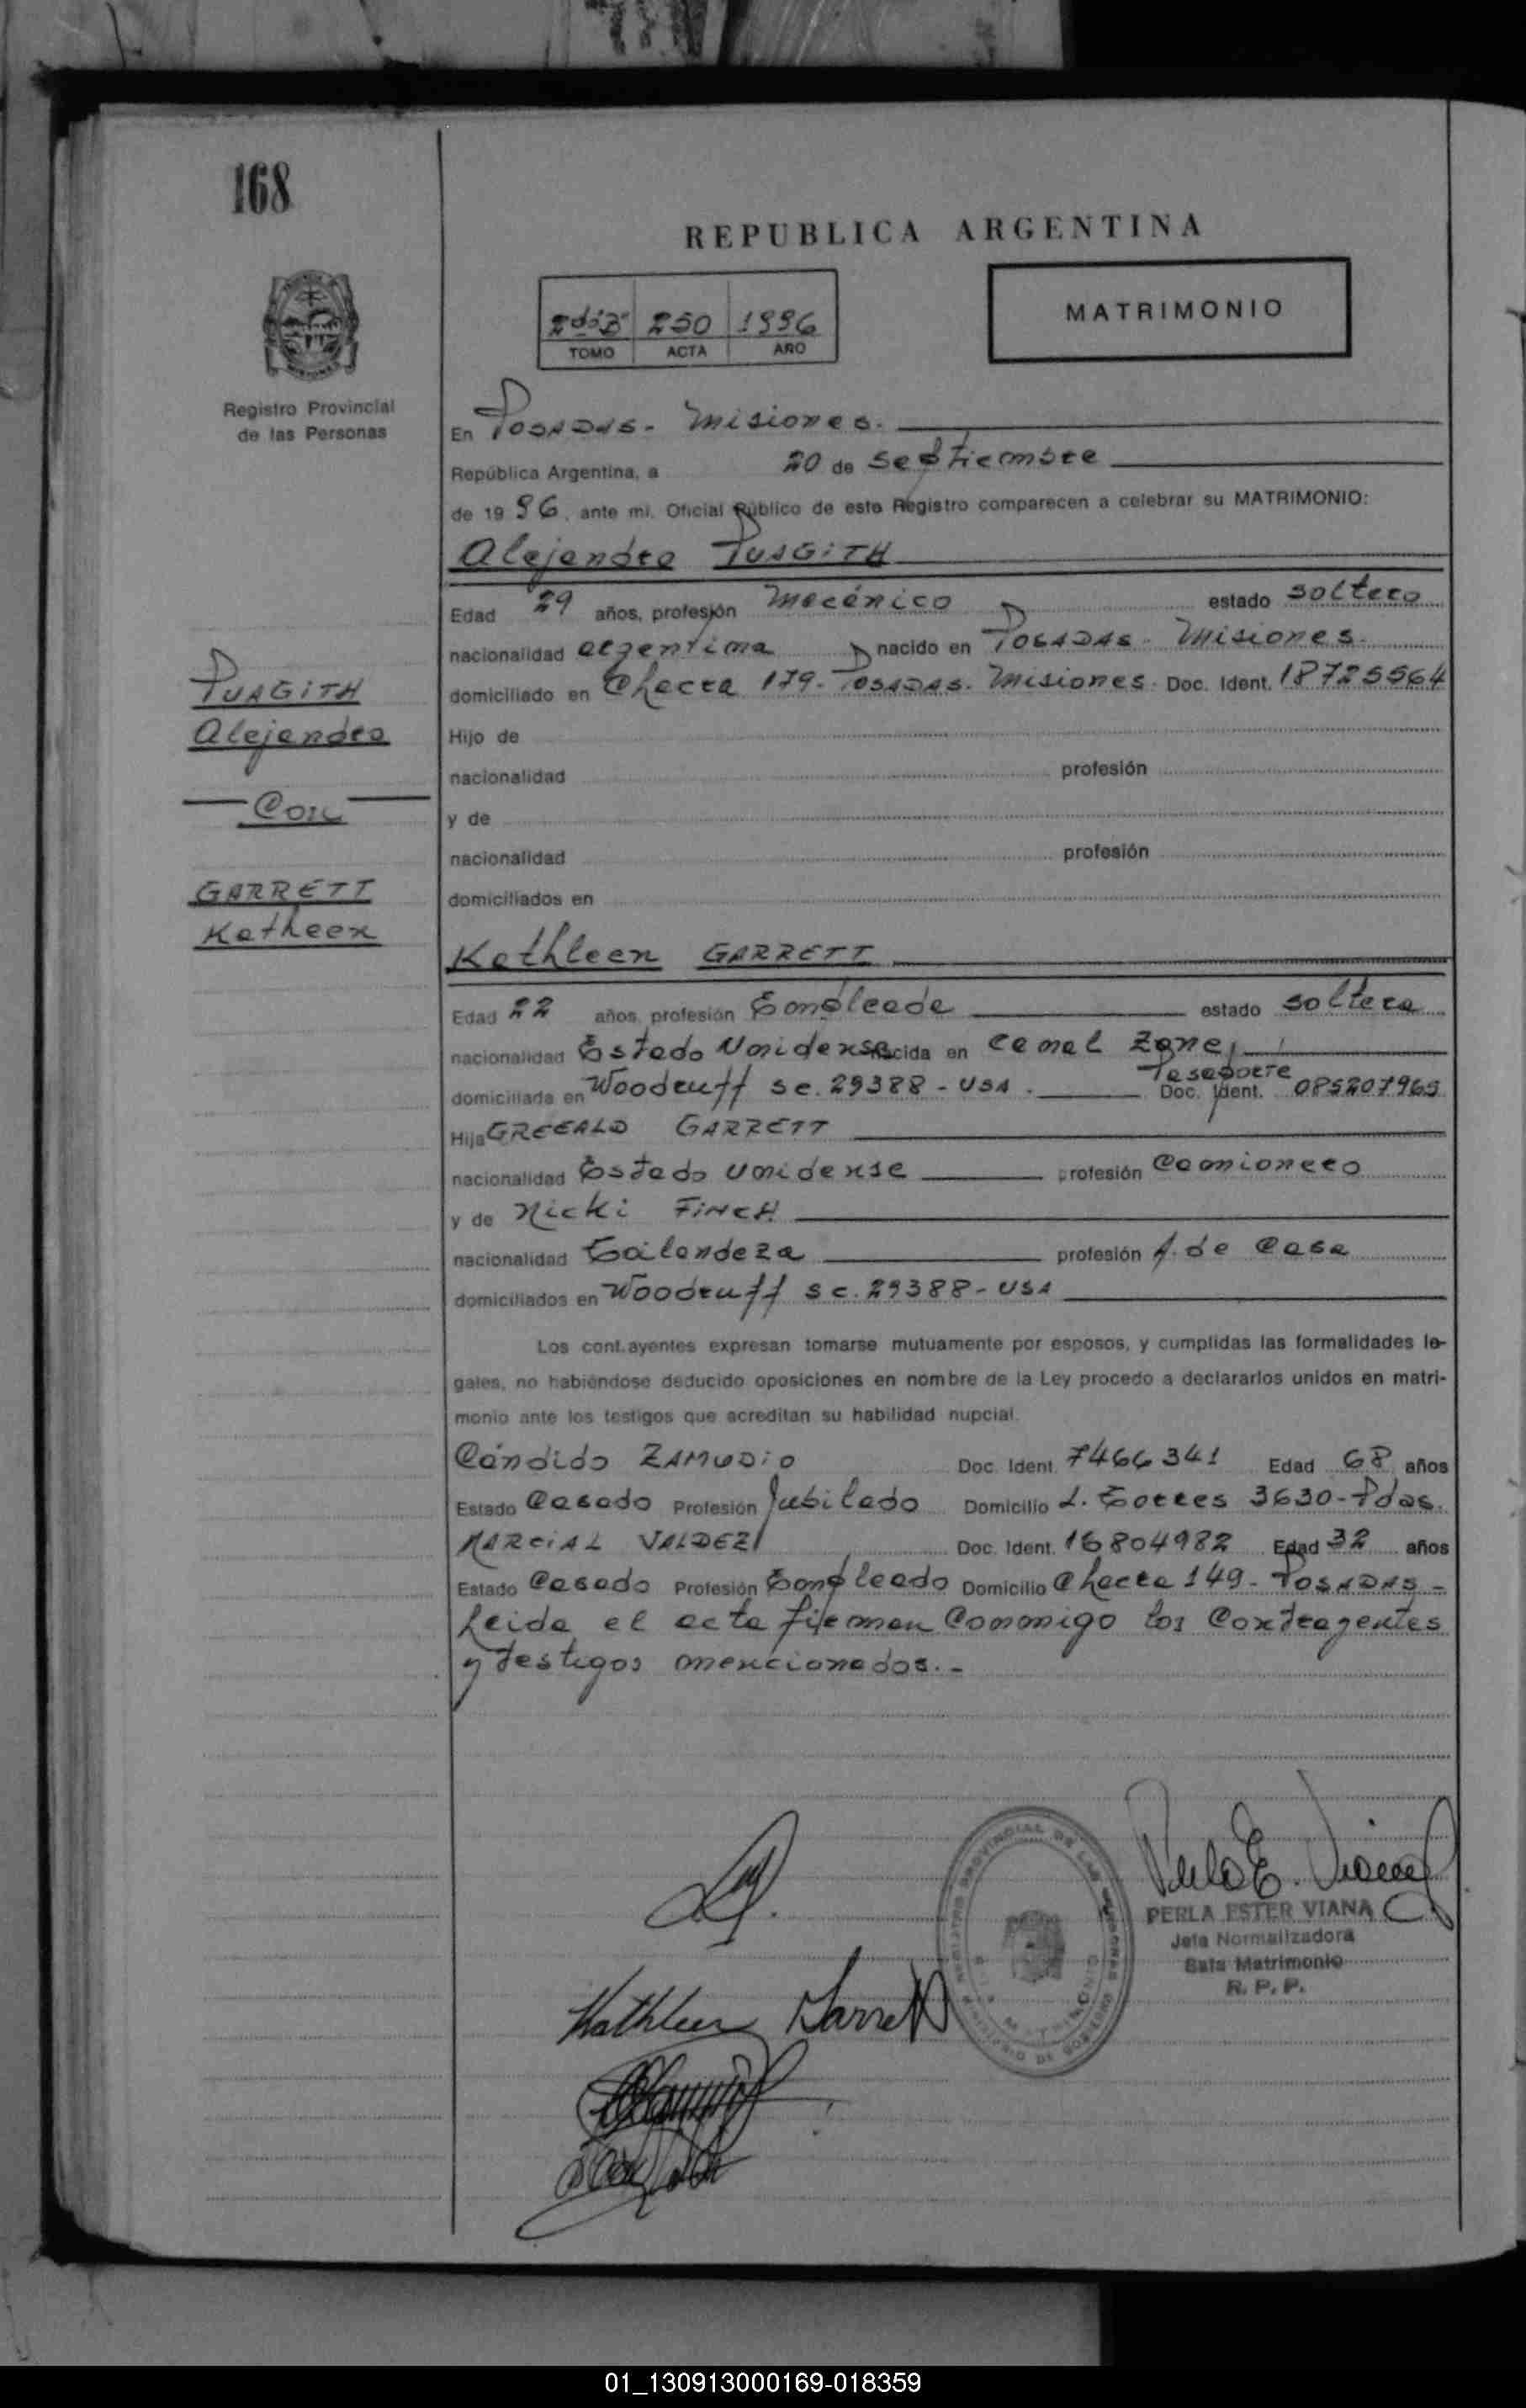 168
REPUBLICA ARGENTINA
MATRIMONIO
2do "B" 250 1996
TOMO ACTA AÑO
Registro Provincial
de las Personas
En POSADAS - Misiones.
República Argentina, a 20 de Septiembre
de 1996, ante mi, Oficial Público de este Registro comparecen a celebrar su MATRIMONIO:
Alejandro PUAGITH
Edad 29 años, profesión Mecánico estado soltero
nacionalidad argentina nacido en POSADAS - Misiones.
domiciliado en Chacra 179 - POSADAS. Misiones. Doc. Ident. 18725564
Hijo de
nacionalidad profesión
y de
nacionalidad profesión
domiciliados en
PUAGITH
Alejandro
Con
GARRETT
Katheen
Kathleen GARRETT
Edad 22 años, profesión Empleada estado soltera
nacionalidad Estado Unidense nacida en Canal Zone,
domiciliada en Woodruff sc. 29388 - USA. Pasaporte Doc. Ident. 085207965
Hija GREEALD GARRETT
nacionalidad Estado Unidense profesión Camionero
y de Nicki FINCH
nacionalidad Tailandeza profesión A. de Casa
domiciliados en Woodruff sc. 29388 - USA
Los cont.ayentes expresan tomarse mutuamente por esposos, y cumplidas las formalidades le-
gales, no habiéndose deducido oposiciones en nombre de la Ley procedo a declararlos unidos en matri-
monio ante los testigos que acreditan su habilidad nupcial.
Cándido ZAMUDIO Doc. Ident. 7466341 Edad 68 años
Estado Casado Profesión Jubilado Domicilio L. Torres 3630 - Pdas.
MARCIAL VALDEZ Doc. Ident. 16804982 Edad 32 años
Estado Casado Profesión Empleado Domicilio Chacra 149 - POSADAS -
Leida el acta firman Conmigo los Contrayentes
y testigos mencionados. -
Perla E. Viana
PERLA ESTER VIANA
Jefa Normalizadora
Sala Matrimonio
R. P. P.
Kathleen Garrett
01_130913000169-018359